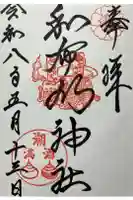 奉拝
和布刈神社
令和八年五月十三日